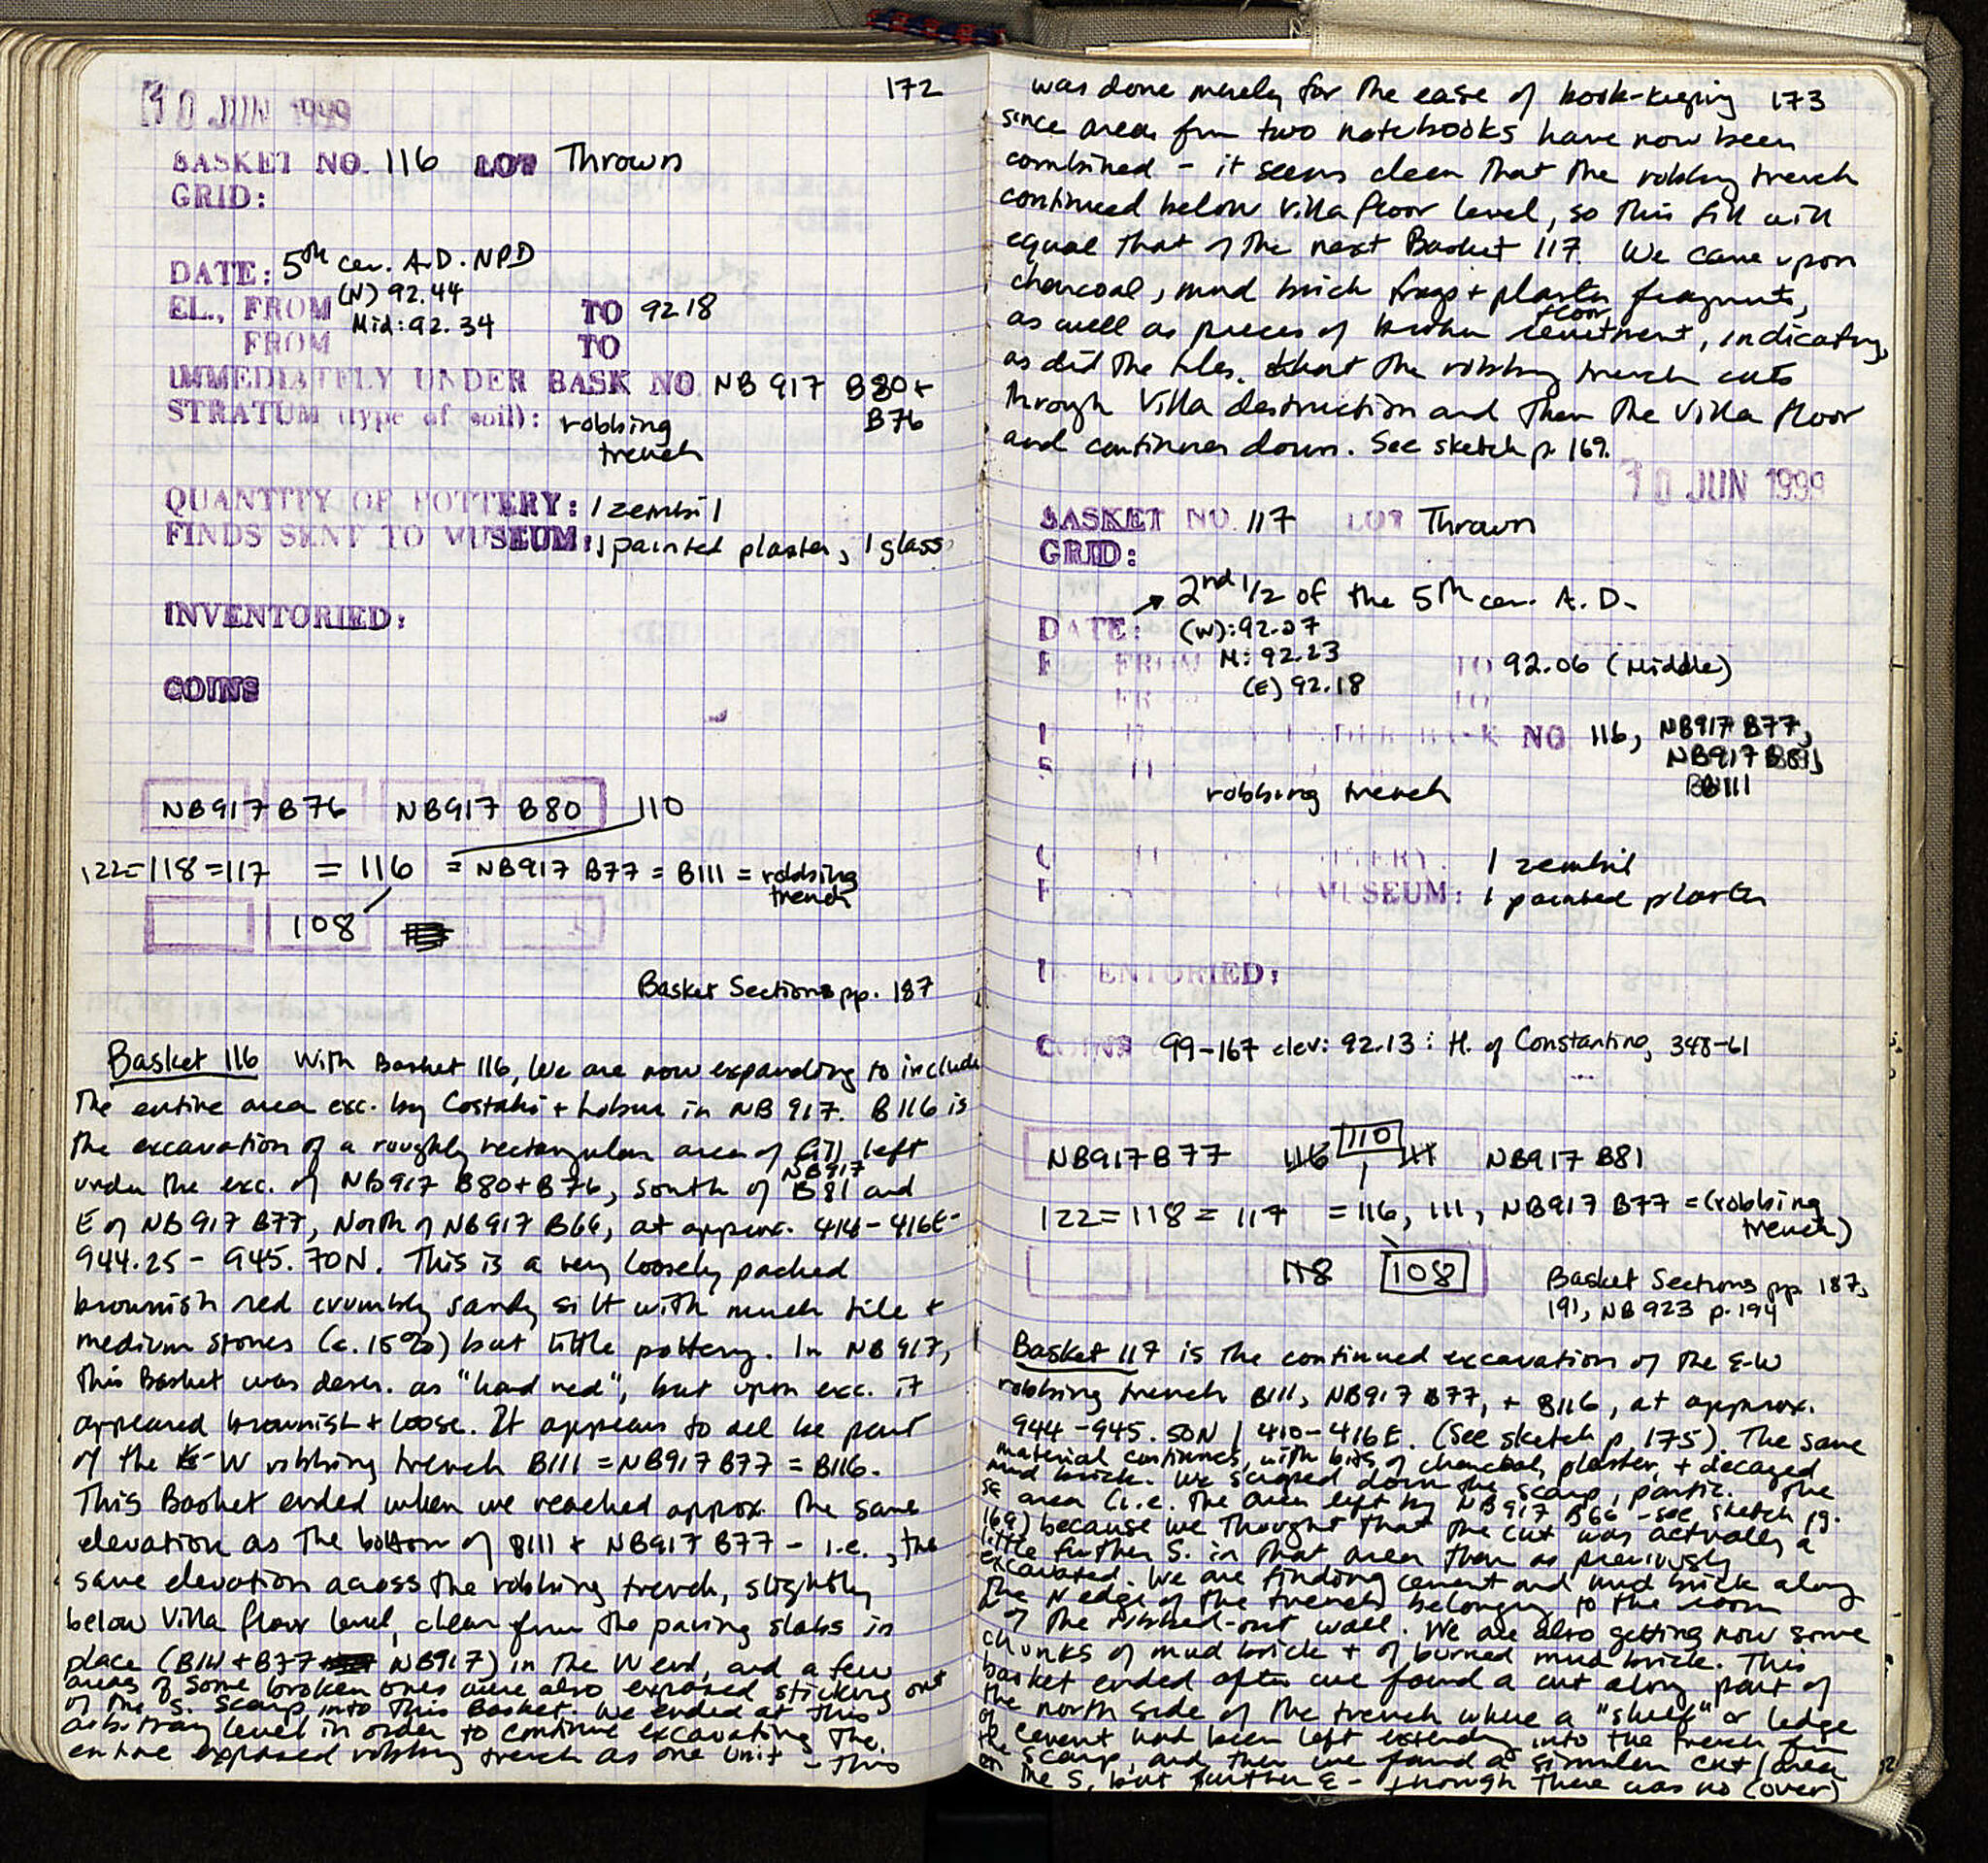 172
10 JUN 1999
BASKET NO. 116 LOT Thrown
GRID:
DATE: 5th cen. A.D. NPD
EL., FROM (N) 92.44 TO 92.18
Mid: 92.34
FROM TO
IMMEDIATELY UNDER BASK NO NB 917 B80+
B76
STRATUM (type of soil): robbing
trench
QUANTITY OF POTTERY: 1 zembil
FINDS SENT TO MUSEUM: 1 painted plaster, 1 glass
INVENTORIED:
COINS
NB917 B76 NB917 B80 110
122=118=117 = 116 = NB917 B77 = B111 = robbing
trench
108
Basket Sections pp. 187
Basket 116 With Basket 116, we are now expanding to include
the entire area exc. by Costaki + in NB 917. B116 is
the excavation of a roughly rectangular area of fill left
under the exc. of NB917 B80+B76, south of NB917 B81 and
E of NB917 B77, North of NB917 B66, at approx. 414-416E-
944.25 - 945.70N. This is a very loosely packed
brownish red crumbly sandy silt with much tile +
medium stones (c. 15%) but little pottery. In NB 917,
this Basket was descr. as "hard red", but upon exc. it
appeared brownish + loose. It appears to all be part
of the E-W robbing trench B111 = NB917 B77 = B116.
This Basket ended when we reached approx. the same
elevation as the bottom of B111 + NB917 B77 - i.e., the
same elevation across the robbing trench, slightly
below Villa floor level, clear from the paving slabs in
place (B111 + B77 NB917) in the W end, and a few
areas of some broken ones were also exposed sticking out
of the S. scarp into this Basket. We ended at this
arbitrary level in order to continue excavating the
entire exposed robbing trench as one unit - this
was done merely for the ease of book-keeping 173
since areas from two notebooks have now been
combined - it seems clear that the robbing trench
continued below villa floor level, so this fill will
equal that of the next Basket 117. We came upon
charcoal, mud brick frags + plaster fragments,
as well as pieces of broken floor, indicating,
as did the tiles, that the robbing trench cuts
through Villa destruction and then the Villa floor
and continues down. See sketch p. 169.
10 JUN 1999
BASKET NO. 117 LOT Thrown
GRID:
→ 2nd 1/2 of the 5th cen. A.D.
DATE: (W): 92.27
FROM M: 92.23 TO 92.06 (Middle)
(E) 92.18
FR TO
NO 116, NB917 B77,
NB917 B81,
B111
robbing trench
1 zembil
MUSEUM: 1 painted plaster
ENTORIED:
COINS 99-167 elev: 92.13: H. of Constantine, 348-61
NB917 B77 116 110 111 NB917 B81
122 = 118 = 117 = 116, 111, NB917 B77 = (robbing
trench)
118 108
Basket Sections pp 187,
191, NB 923 p. 194
Basket 117 is the continued excavation of the E-W
robbing trench B111, NB917 B77, + B116, at approx.
944-945.50N / 410-416E. (See sketch p. 175). The same
material continues, with bits of charcoal, plaster, + decayed
mud brick. We scraped down the scarp, partic. the
SE area (i.e. the area left by NB917 B66 - see sketch pg.
169) because we thought that the cut was actually a
little further S. in that area than as previously
excavated. We are finding cement and mud brick along
the N edge of the trench belonging to the room
of the robbed-out wall. We are also getting now some
chunks of mud brick + of burned mud brick. This
basket ended after we found a cut along part of
the north side of the trench where a "shelf" or ledge
of cement had been left extending into the trench from
the scarp, and then we found a similar cut/area
on the S, but further E - though there was no (over)